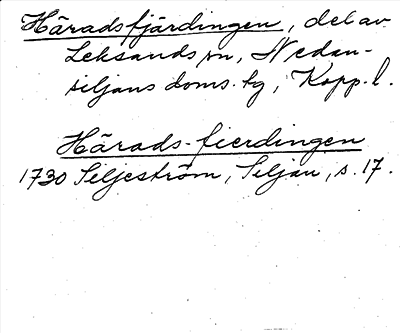 Häradsfjärdingen, del av
Leksands sn, Nedan-
siljans doms. hg, Kopp. l.
Härads-fierdingen
1730 Siljeström, Siljan, s. 17.